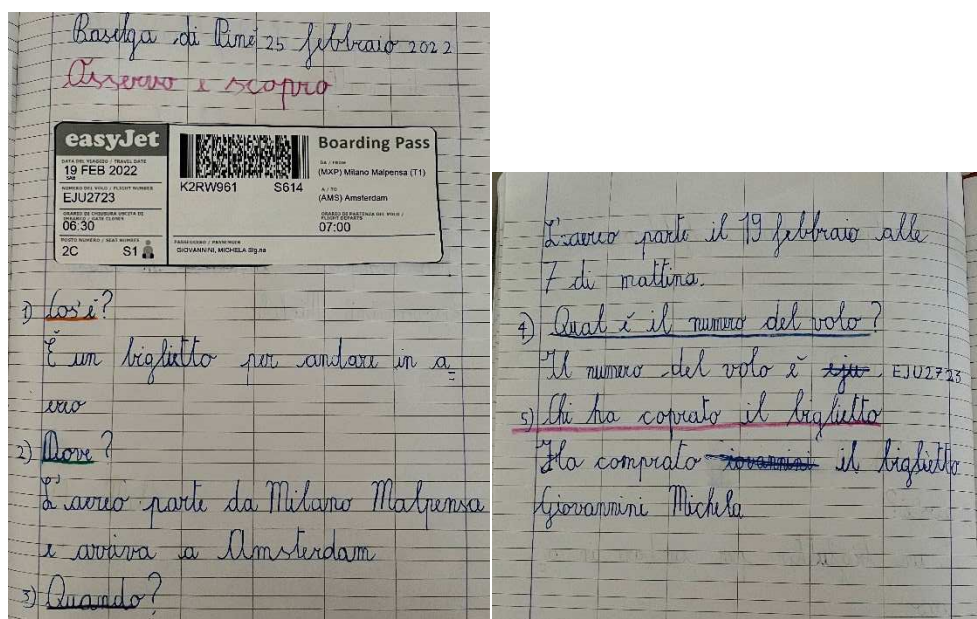 Baselga di Piné 25 febbraio 2022
Osservo e scopro
easyJet
Boarding Pass
DATA DEL VIAGGIO / TRAVEL DATE
19 FEB 2022
SAB
NUMERO DEL VOLO / FLIGHT NUMBER
EJU2723
ORARIO DI CHIUSURA USCITA DI
IMBARCO / GATE CLOSES
06:30
POSTO NUMERO / SEAT NUMBER
2C S1
K2RW961 S614
PASSEGGERO / PASSENGER
GIOVANNINI, MICHELA Sig.na
DA / FROM
(MXP) Milano Malpensa (T1)
A / TO
(AMS) Amsterdam
ORARIO DI PARTENZA DEL VOLO /
FLIGHT DEPARTS
07:00
1) Cos'è?
È un biglietto per andare in a=
ereo
2) Dove?
L'aereo parte da Milano Malpensa
e arriva a Amsterdam
3) Quando?
L'aereo parte il 19 febbraio alle
7 di mattina.
4) Qual è il numero del volo?
Il numero del volo è eju EJU2723
5) Chi ha coprato il biglietto
Ha comprato iovannini il biglietto
Giovannini Michela